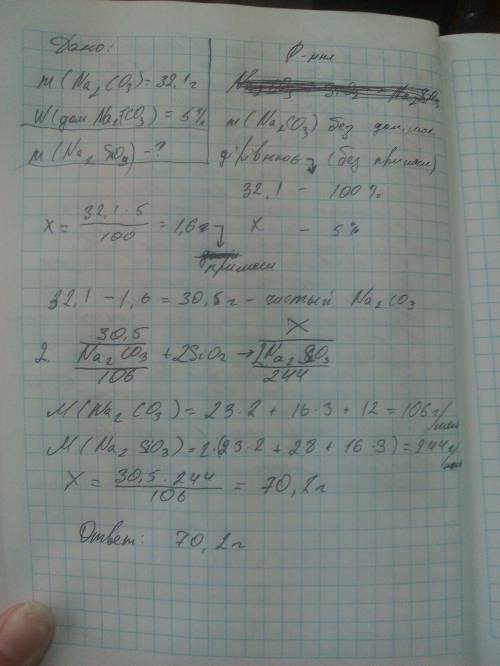 Дано:
m(Na₂CO₃)=32,1г
W(дом. Na₂CO₃) = 5%
m(Na₂SiO₃) - ?
Р-ння
m(Na₂CO₃) без дом.
(без примеси)
32,1 - 100%
x - 5%
X = 32,1·5 / 100 = 1,6г
примеси
32,1 - 1,6 = 30,5г - чистый Na₂CO₃
30,5 X
2. Na₂CO₃ + 2SiO₂ → 2Na₂SiO₃
106 244
M(Na₂CO₃) = 23·2 + 16·3 + 12 = 106г/моль
M(Na₂SiO₃) = 2·(23·2 + 28 + 16·3) = 244г/моль
X = 30,5·244 / 106 = 70,2г
Ответ: 70,2г